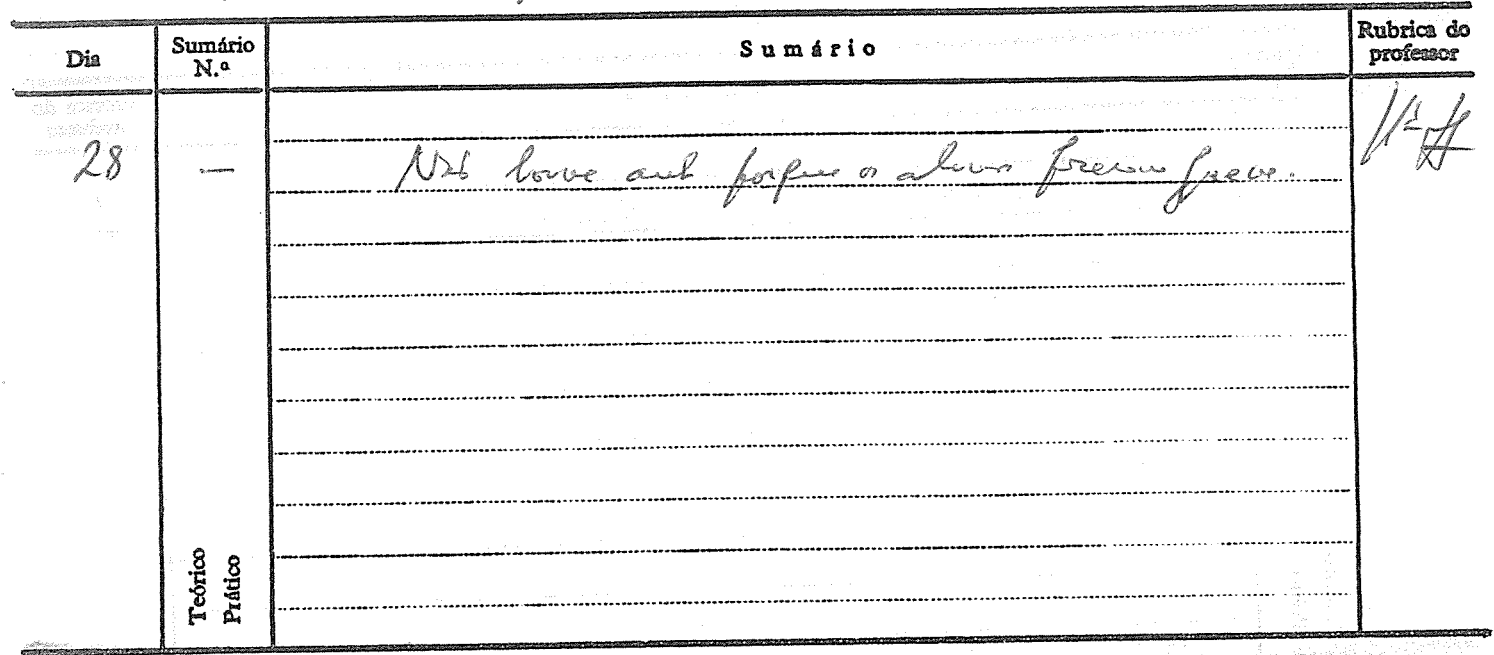 Dia
Sumário N.º
Sumário
Rubrica do professor
28 — Não houve aula porque os alunos fizeram greve.
Teórico
Prático